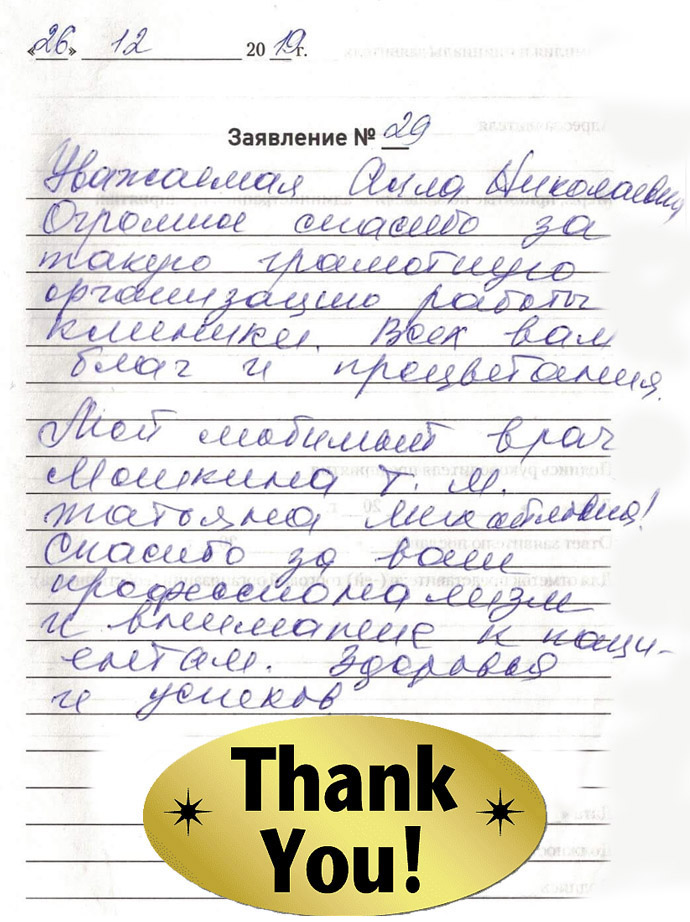 «26» 12 2019г.
Заявление № 29
Уважаемая Алла Николаевна
Огромное спасибо за
такую грамотную
организацию работы
клиники. Всех вам
благ и процветания.
Мой любимый врач
Мошкина Т. М.
Татьяна Михайловна!
Спасибо за ваш
професионализм
и внимание к паци-
ентам. Здоровья
и успехов
Thank
You!